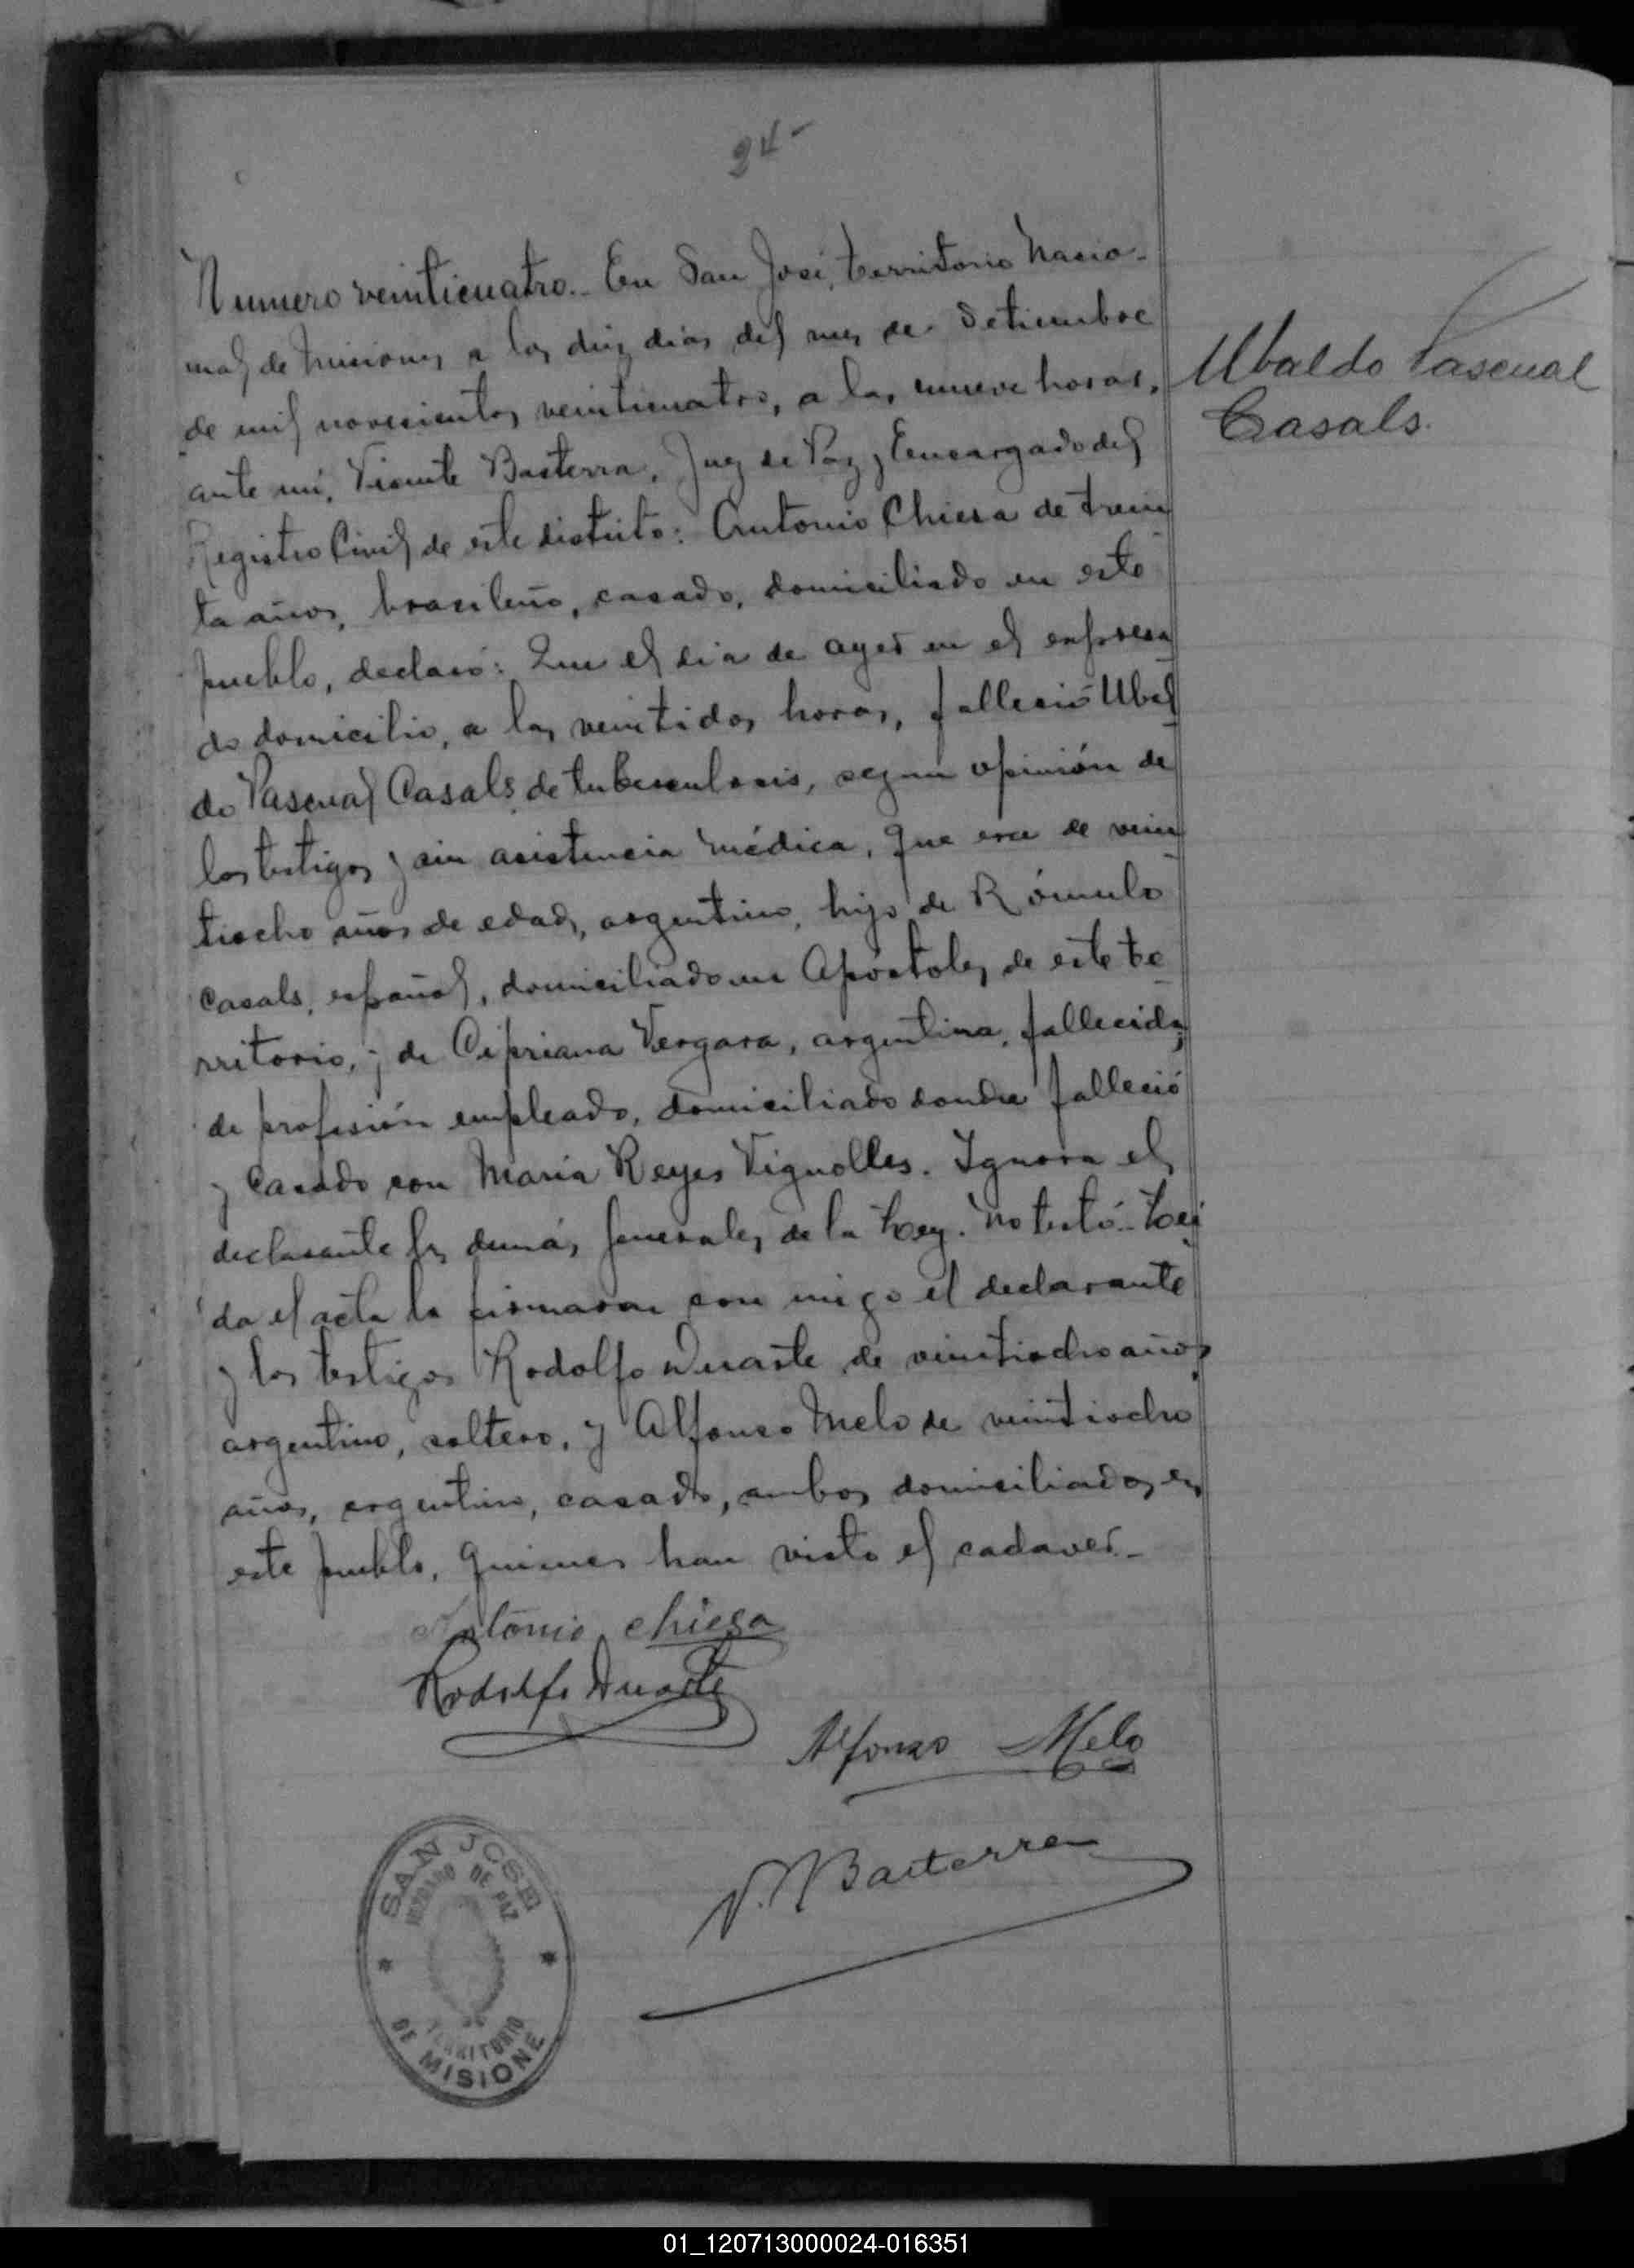 24-
Numero veinticuatro.- En San José, territorio Nacio-
nal de Misiones a los diez dias del mes de Setiembre
de mil novecientos veinticuatro, a las nueve horas,
ante mí, Vicente Basterra, Juez de Paz y Encargado del
Registro Civil de este distrito: Antonio Chiesa de trein
ta años, brasileño, casado, domiciliado en este
pueblo, declaró: Que el dia de ayer en el expresa
do domicilio, a las veintidos horas, falleció Ubal
do Pascual Casals de tuberculosis, segun opinión de
los testigos y sin asistencia médica, que era de vein
tiocho años de edad, argentino, hijo de Rómulo
Casals, español, domiciliado en Apóstoles de este te
rritorio, y de Cipriana Vergara, argentina, fallecida,
de profesión empleado, domiciliado donde falleció
y casado con Maria Reyes Vignolles. Ignora el
declarante las demás generales de la Ley. No testó.- Leí
da el acta la firmaron con migo el declarante
y los testigos Rodolfo Duarte de veintiocho años,
argentino, soltero, y Alfonso Melo de veintiocho
años, argentino, casado, ambos domiciliados en
este pueblo, quienes han visto el cadaver.-
Ubaldo Pascual
Casals.
Antonio Chiesa
Rodolfo Duarte
Alfonso Melo
V. Basterra
SAN JOSE
JUZGADO DE PAZ
TERRITORIO
DE MISIONE
01_120713000024-016351